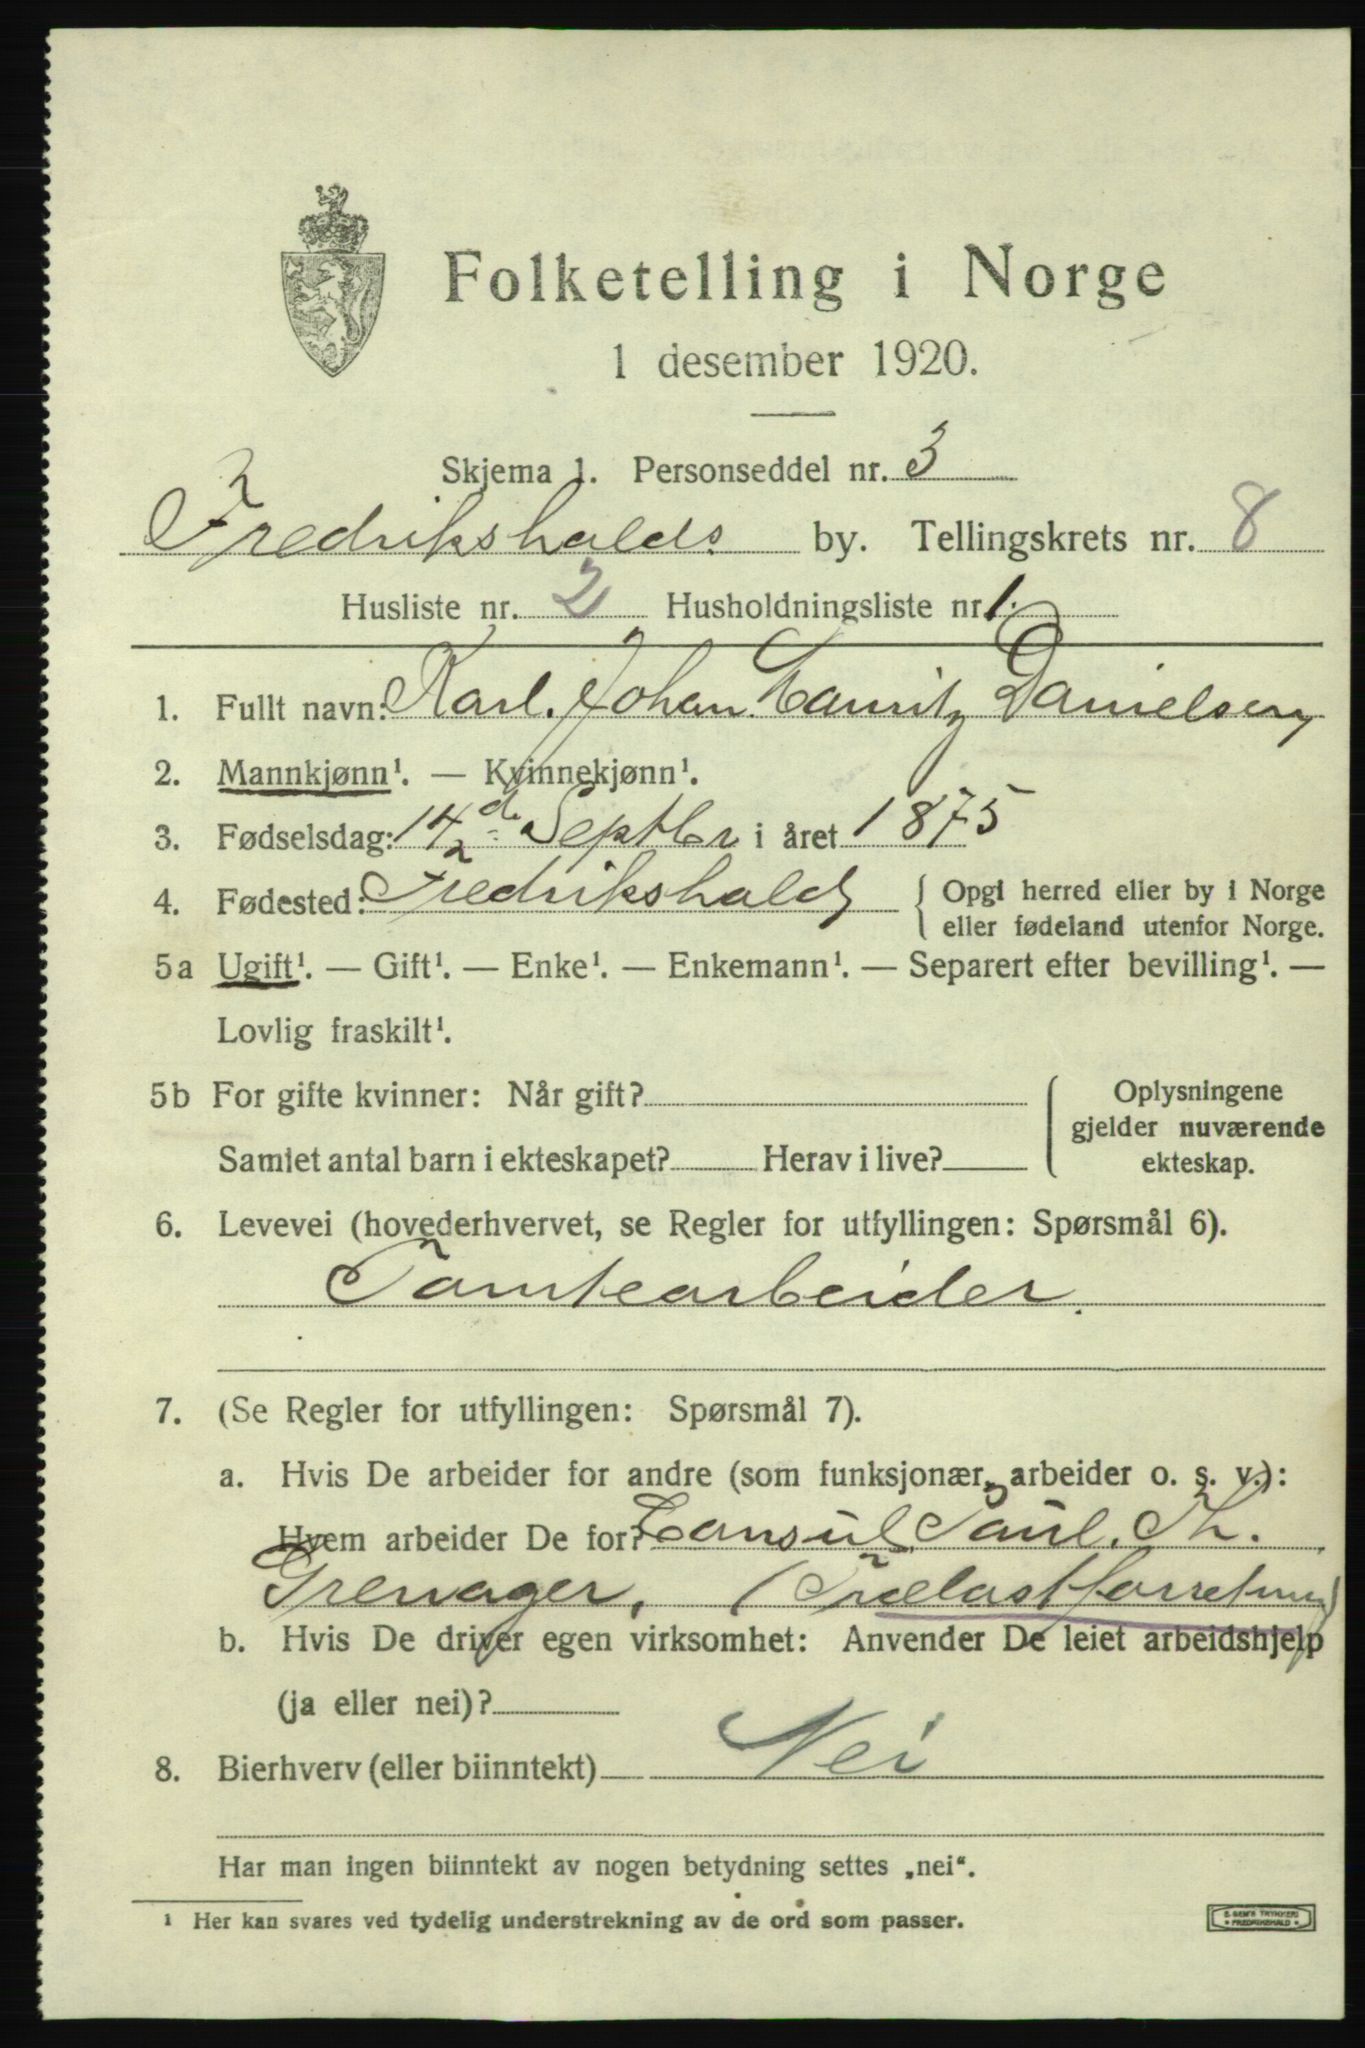 Folketelling i Norge
1 desember 1920.
Skjema 1. Personseddel nr. 3
Fredrikshalds by. Tellingskrets nr. 8
Husliste nr. 2 Husholdningsliste nr. 1.
1. Fullt navn: Karl. Johan. Lauritz Danielsen
2. Mannkjønn¹. — Kvinnekjønn¹.
3. Fødselsdag: 14de Septbr i året 1875
4. Fødested: Fredrikshald { Opgi herred eller by i Norge
eller fødeland utenfor Norge.
5a Ugift¹. — Gift¹. — Enke¹. — Enkemann¹. — Separert efter bevilling¹. —
Lovlig fraskilt¹.
5b For gifte kvinner: Når gift? { Oplysningene
gjelder nuværende
Samlet antal barn i ekteskapet? Herav i live? ekteskap.
6. Levevei (hovederhvervet, se Regler for utfyllingen: Spørsmål 6).
Tomtearbeider.
7. (Se Regler for utfyllingen: Spørsmål 7).
a. Hvis De arbeider for andre (som funksjonær, arbeider o. s. v.):
Hvem arbeider De for? Consul Paul. Th.
Grenager, (Trælastforretning)
b. Hvis De driver egen virksomhet: Anvender De leiet arbeidshjelp
(ja eller nei)?
8. Bierhverv (eller biinntekt) Nei
Har man ingen biinntekt av nogen betydning settes „nei“.
¹ Her kan svares ved tydelig understrekning av de ord som passer.
E. SEM'S TRYKKERI
FREDRIKSHALD